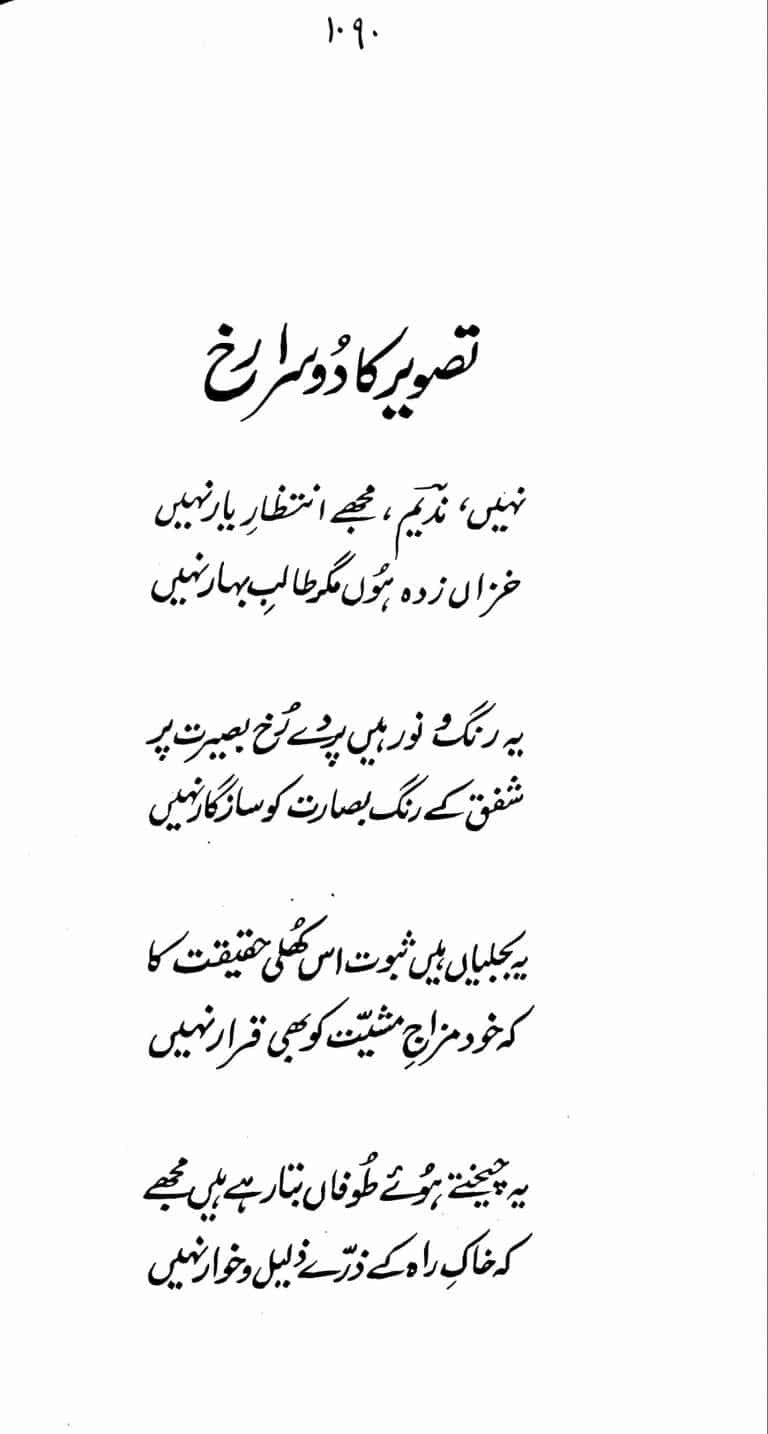 ۱۰۹۰
تصویر کا دُوسرا رخ
نہیں، ندیمؔ، مجھے انتظارِ یار نہیں
خزاں زدہ ہُوں مگر طالبِ بہار نہیں
یہ رنگ و نور ہیں پردے رُخِ بصیرت پر
شفق کے رنگ بصارت کو سازگار نہیں
یہ بجلیاں ہیں ثبوت اس کھُلی حقیقت کا
کہ خود مزاجِ مشیّت کو بھی قرار نہیں
یہ چیختے ہُوئے طُوفاں بتا رہے ہیں مجھے
کہ خاکِ راہ کے ذرّے ذلیل و خوار نہیں